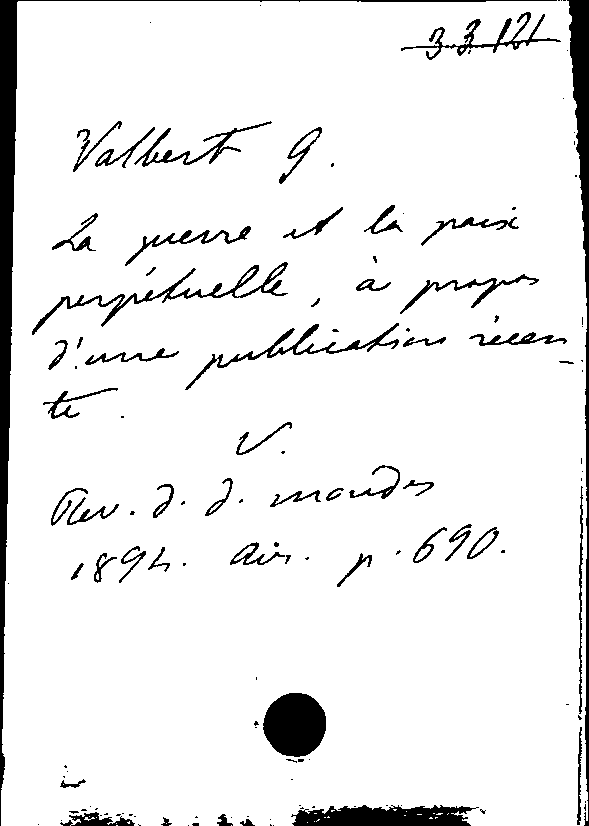 3.3.121
Valbert G.
La guerre et la paix
perpétuelle, à propos
d'une publication récen
te.
V.
Rev. d. d. mondes
1894. Avr. p. 690.